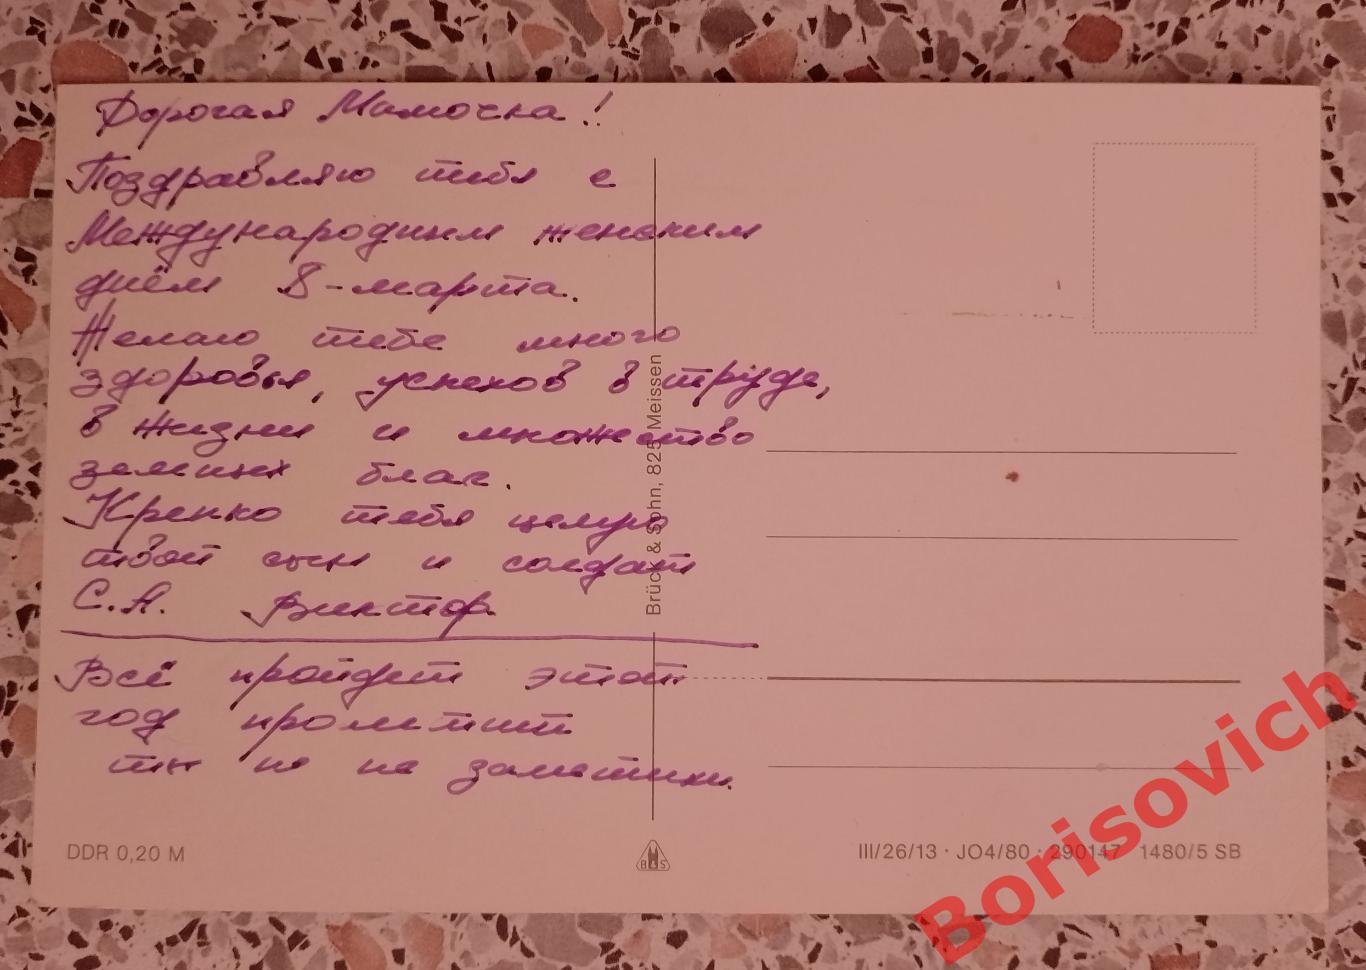 Дорогая Мамочка!
Поздравляю тебя с
Международным женским
днём 8-марта.
Желаю тебе много
здоровья, успехов в труде,
в жизни и множество
земных благ.
Крепко тебя целую
твой сын и солдат
С.А. Виктор
Всё пройдет этот
год пролетит
ты и не заметишь.
Brück & Sohn, 825 Meissen
DDR 0,20 M
B&S
III/26/13 · JO4/80 · 290147 1480/5 SB
Borisovich